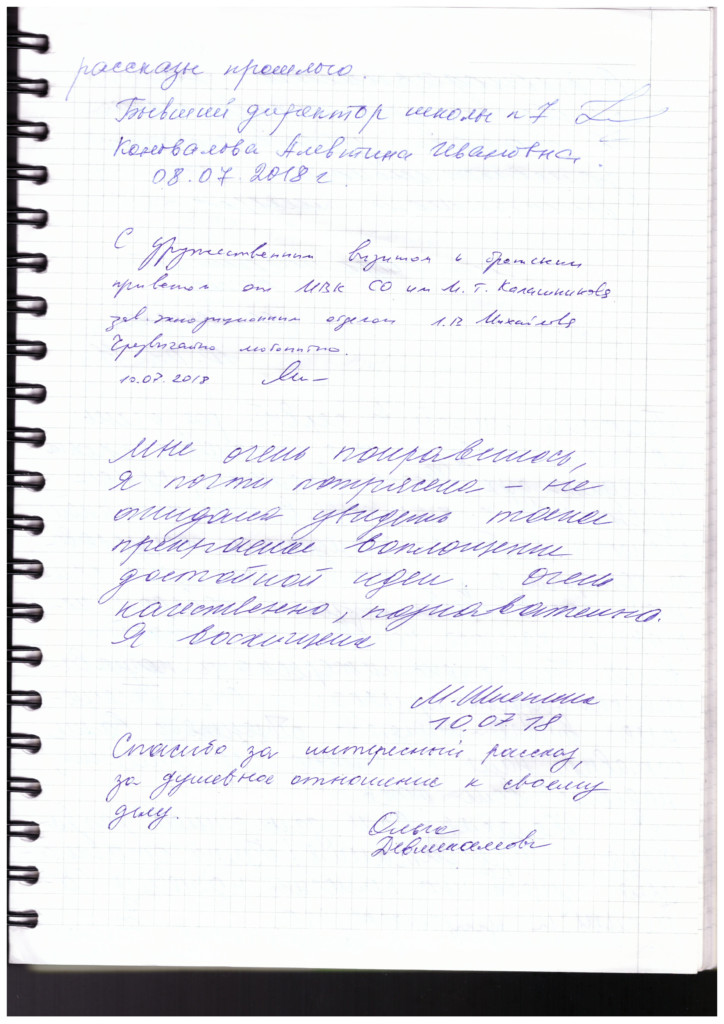 рассказы прошлого.
Бывший директор школы n 7
Коновалова Алевтина Ивановна.
08.07.2018 г
С дружественным визитом и братским
приветом от МВК СО им М. Т. Калашникова
зав. экспозиционным отделом Михайлова
Чрезвычайно любопытно.
10.07.2018
Мне очень понравилось,
я почти потрясена – не
ожидала увидеть такое
прекрасное воплощение
достойной идеи. Очень
качественно, познавательно.
Я восхищена
М.
10.07 18
Спасибо за интересный рассказ,
за душевное отношение к своему
делу.
Ольга